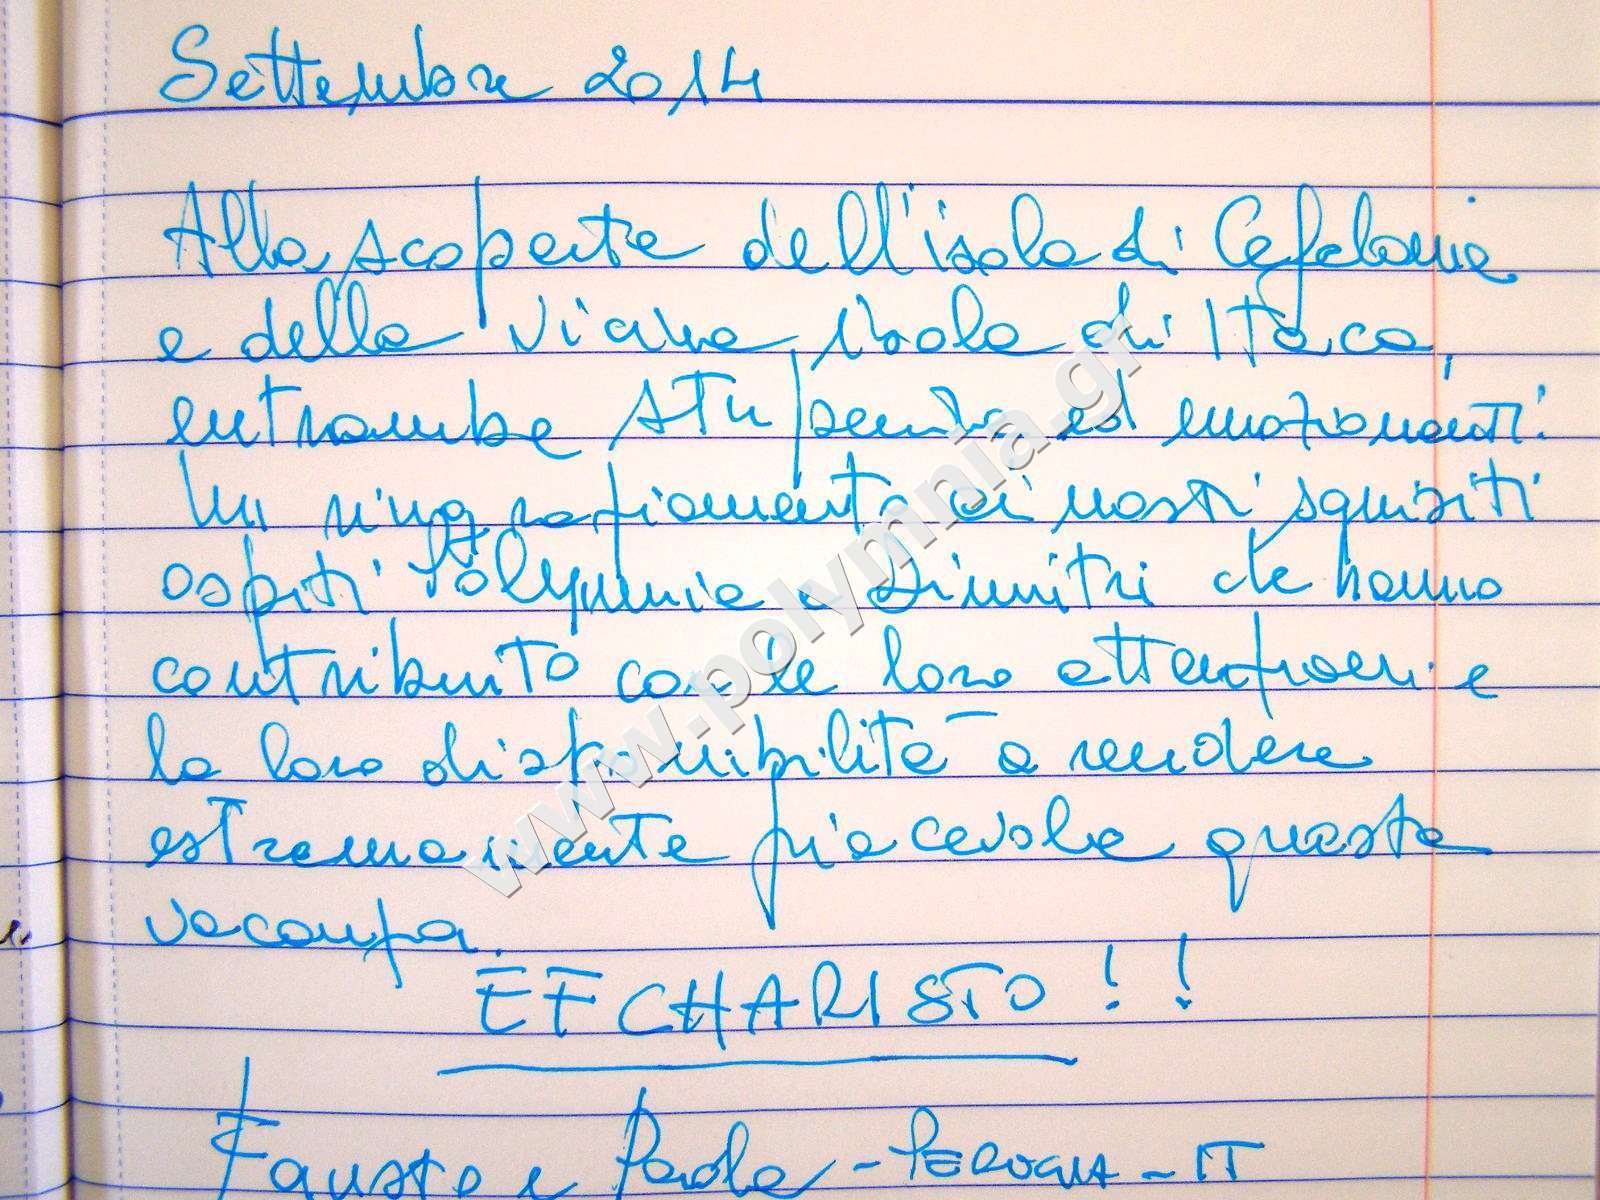 Settembre 2014
Alla scoperta dell'isola di Cefalonia
e della vicina isola di Itaca,
entrambe stupende ed emozionanti.
Un ringraziamento ai nostri squisiti
ospiti Polymnia e Dimitri che hanno
contribuito con le loro attenzioni e
la loro disponibilità a rendere
estremamente piacevole questa
vacanza.
EFCHARISTO!!
Fausto e Paola - PERUGIA - IT
www.polymnia.gr